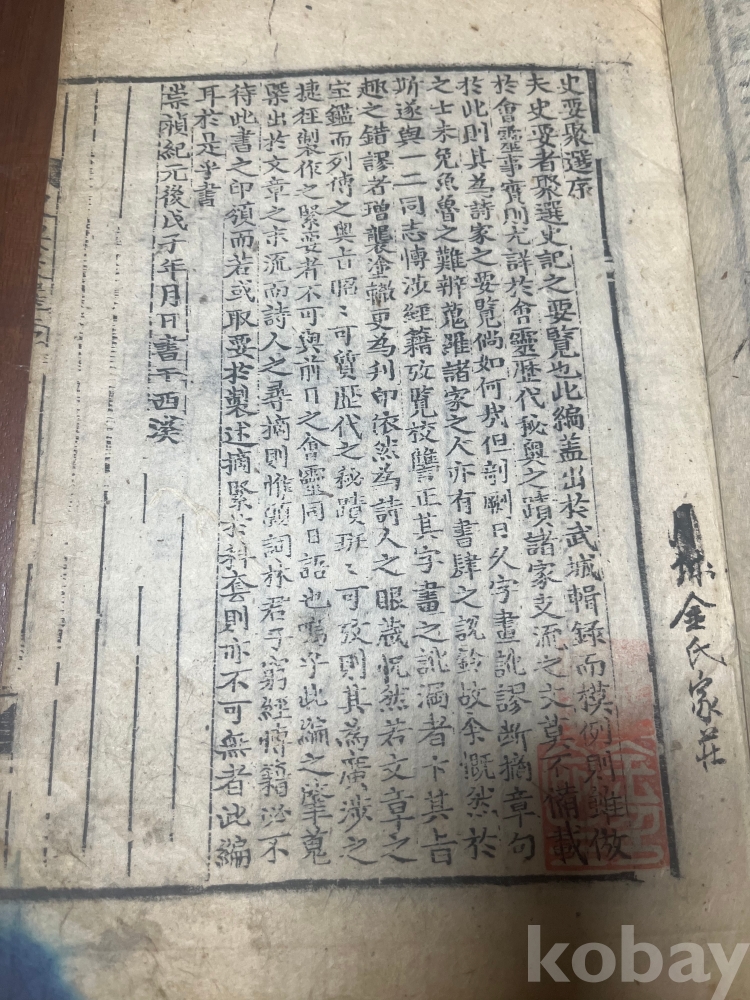 史要聚選序
夫史要者聚選史記之要覽也此編盖出於武城輯錄而模例則雖倣
於會靈事實則尤詳於會靈歷代秘奧之蹟諸家支流之文莫不備載
於此則其爲詩家之要覽倘如何哉但剞劂日久字畫訛謬斷摘章句
之士未免魚魯之難辨蒐羅諸家之人亦有書肆之說鈴故余慨然於
斯遂與一二同志慱涉經籍攷覽挍讐正其字畫之訛漏者卞其旨
趣之錯謬者增襲塗轍更爲刋印依然爲詩人之眼藏怳然若文章之
宝鑑而列傳之奧旨昭〻可質歷代之秘蹟班〻可攷則其爲廣涉之
捷徑製作之緊要者不可與前日之會靈同日語也嗚乎此編之肇蒐
槩出於文章之末流而詩人之尋摘則惟願詞林君子窮經慱籍必不
待此書之印領而若或取要於製述摘緊於科套則亦不可無者此編
耳於是乎書
崇禎紀元後戊子年月日書于西溪
金氏家莊
kobay